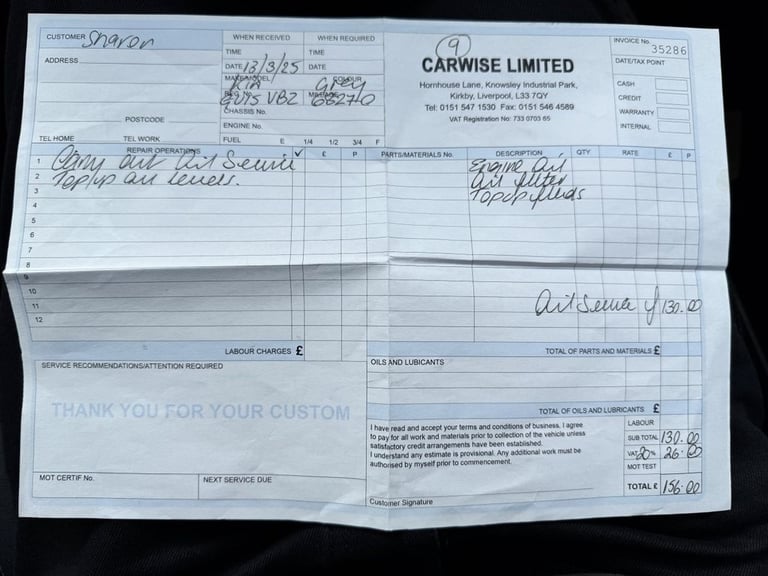 CUSTOMER Sharon
ADDRESS
POSTCODE
TEL HOME TEL WORK
WHEN RECEIVED WHEN REQUIRED
TIME TIME
DATE 13/3/25 DATE
MAKE/MODEL KIA COLOUR Grey
REG No. MILEAGE 68270
CHASSIS No.
ENGINE No.
FUEL E 1/4 1/2 3/4 F
9
CARWISE LIMITED
Hornhouse Lane, Knowsley Industrial Park,
Kirkby, Liverpool, L33 7QY
Tel: 0151 547 1530 Fax: 0151 546 4589
VAT Registration No: 733 0703 65
INVOICE No. 35286
DATE/TAX POINT
CASH
CREDIT
WARRANTY
INTERNAL
REPAIR OPERATIONS ✓ £ P PARTS/MATERIALS No. DESCRIPTION QTY RATE £ P
1 Carry out Oil Service Engine Oil
2 Top/up all levels. Oil filter
3 Topup fluids
4
5
6
7
8
9
10
11 Oil Service 130.00
12
LABOUR CHARGES £ TOTAL OF PARTS AND MATERIALS £
SERVICE RECOMMENDATIONS/ATTENTION REQUIRED
THANK YOU FOR YOUR CUSTOM
MOT CERTIF No. NEXT SERVICE DUE
OILS AND LUBICANTS
TOTAL OF OILS AND LUBRICANTS £
I have read and accept your terms and conditions of business. I agree
to pay for all work and materials prior to collection of the vehicle unless
satisfactory credit arrangements have been established.
I understand any estimate is provisional. Any additional work must be
authorised by myself prior to commencement.
Customer Signature
LABOUR
SUB TOTAL 130.00
VAT 20% 26.00
MOT TEST
TOTAL £ 156.00